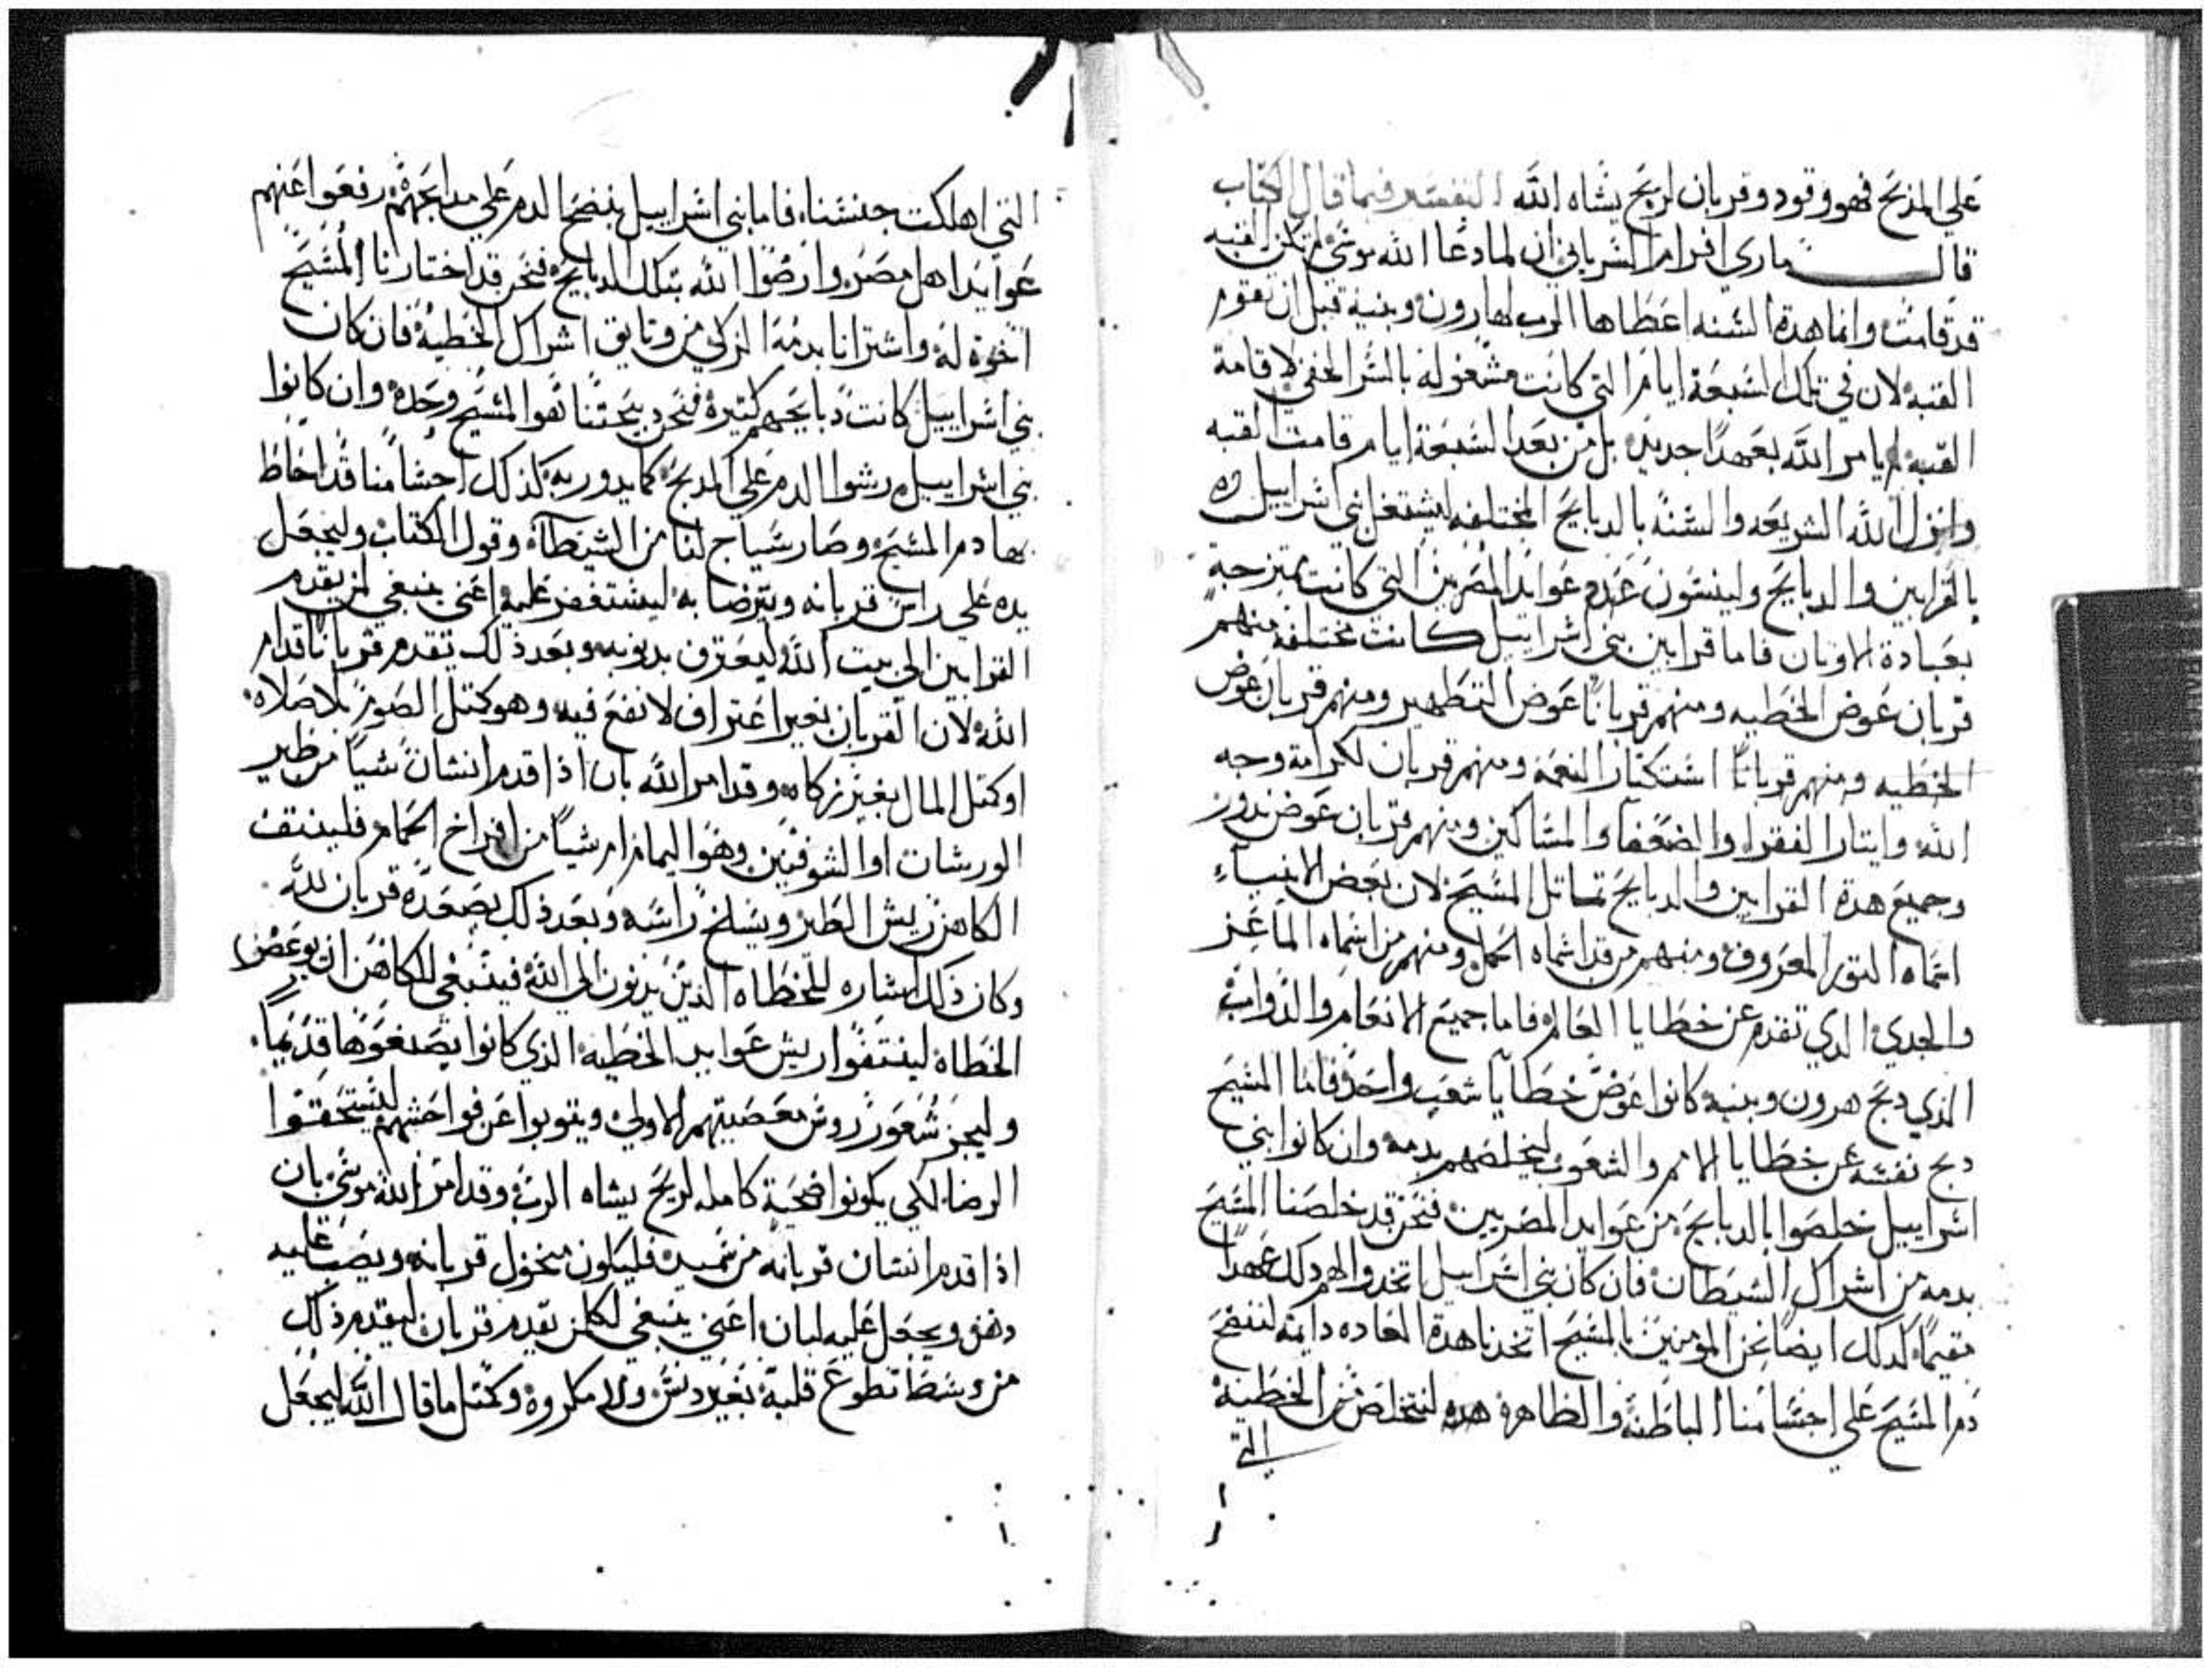 علي المذبح فهو وقود وقربان لريح يشاه الله التفسير فيما قال الكتاب
قال ماري افرام السرياني ان لما دعا الله موسي لم تكن القبه
قد قامت وانما هده السنه اعطاها الرب لهارون وبنيه قبل ان تقوم
القبه لان في تلك السبعة ايام التي كانت مشغوله بالسر الخفي لاقامة
القبه لم يامر الله بعهدًا جديد بل من بعد السبعة ايام قامت القبه
وانزل الله الشريعه والسنه بالدبايح المختلفه ليشتغل بني اسراييل
بالقرابين والدبايح ولينسون عنهم عوايد المصريين التي كانت ممتزجة
بعبادة الاوتان فاما قرابين بني اسراييل كانت مختلفه منهم
قربان عوض الخطيه ومنهم قربانًا عوض التطهير ومنهم قربان عوض
الخطيه ومنهم قربانًا استكتار النعمة ومنهم قربان لكرامة وجه
الله وايتار الفقرا والضعفا والمساكين ومنهم قربان عوض ندور
وجميع هدة القرابين والدبايح تماتل المسيح لان بعض الانبياء
اسماه التور المعروف ومنهم من قد اسماه الحمل ومنهم من اسماه الماعز
والجدي الدي تقدم عن خطايا العالم فاما جميع الانعام والدواب
الذي دبح هرون وبنيه كانوا عوض خطايا شعب واحد فاما المسيح
دبح نفسه عن خطايا الامم والشعوب ليخلصهم بدمه وان كانوا بني
اسراييل خلصوا بالدبايح من عوايد المصريين فنحن قد خلصنا المسيح
بدمه من اشراك الشيطان فان كان بني اسراييل اتخدوا لهم دلك عهدًا
مقيمًا كدلك ايضًا نحن المومنين بالمسيح اتخدنا هدة العاده دايمة لننضح
دم المسيح علي اجسامنا الباطنة والظاهرة هده لنتخلص من الخطية
التي
التي اهلكت جنسنا فاما بني اسراييل بنضح الدم علي مدابحهم رفعوا عنهم
عوايد اهل مصر وارضوا الله بتلك الدبايح فنحن قد اختارنا المسيح
اخوة له واشترانا بدمه الزكي من وتايق اشراك الخطية فان كان
بني اسراييل كانت دبايحهم كتيرة فنحن دبيحتنا هوا المسيح وحده وان كانوا
بني اسراييل رشوا الدم علي المدبح كما يدور به كذلك اجسامنا قد احاط
بها دم المسيح وصار سياج لنا من الشيطان وقول الكتاب وليجعل
يده علي راس قربانه ويترضا به ليستغفر عليه اعني ينبغي لمن يقدم
القرابين الي بيت الله ليعترف بدنوبه وبعد ذلك تقدم قربانًا قدام
الله لان القربان بغير اعتراف لا نفع فيه وهو كمتل الصوم بلا صلاه
او كتل المال بغير زكاه وقد امر الله بان اذا قدم انسان شيًا من طير
الورشات او الشوفنين وهو اليمام ام شيًا من افراخ الحمام فلينتف
الكاهن ريش الطير ويسلخ راسه وبعد ذلك يصعده قربان لله
وكان ذلك اشاره للخطاه الذين يدنون الي الله فينبغي للكاهن ان يوعض
الخطاة لينتفوا ريش عوايد الخطيه الذي كانوا يصنعوها قديمًا
وليجز شعور روس معصيتهم الاولي ويتوبوا عن فواحشهم ليستحقوا
الرضا لكي يكونوا ضحية كامله لريح يشاه الرب وقد امر الله موسي بان
اذا قدم انسان قربانه من سميد فليكون منخول قربانه ويصب عليه
دهن ويجعل عليه لبان اعني ينبغي لكلمن يقدم قربان ليقدم ذلك
من وسط تطوع قلبة بغير دنس ولا مكروة وكمتل ما قال الله ليجعل